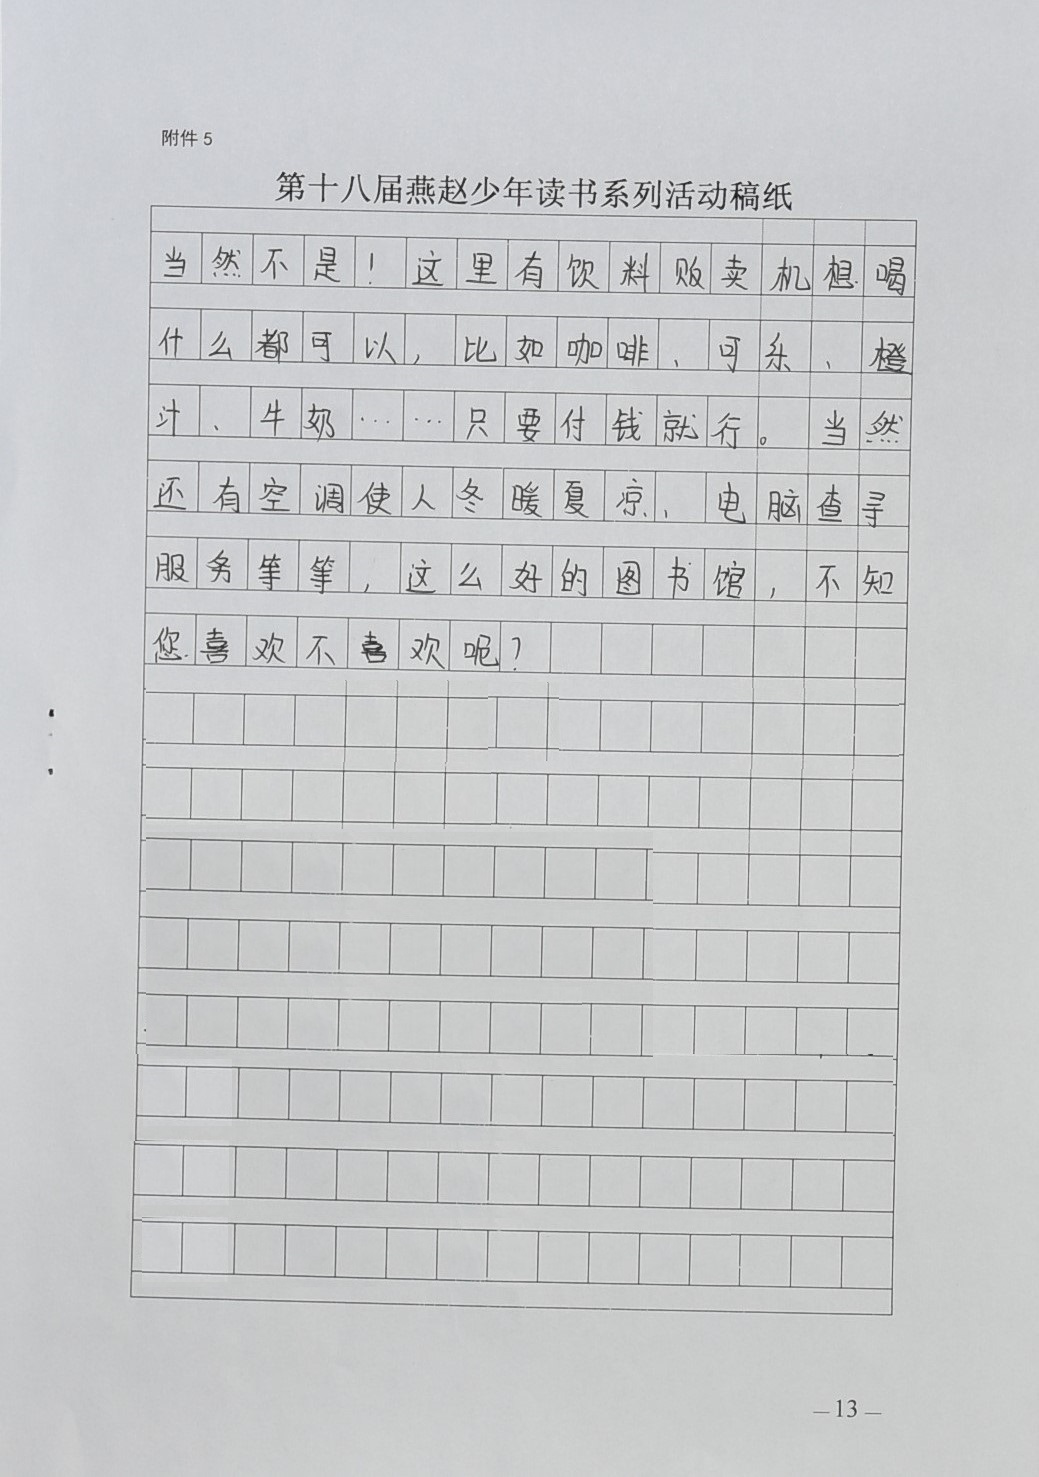 附件5
第十八届燕赵少年读书系列活动稿纸
当然不是！这里有饮料贩卖机想喝
什么都可以，比如咖啡、可乐、橙
汁、牛奶……只要付钱就行。当然
还有空调使人冬暖夏凉、电脑查寻
服务等等，这么好的图书馆，不知
您喜欢不喜欢呢？
—13—